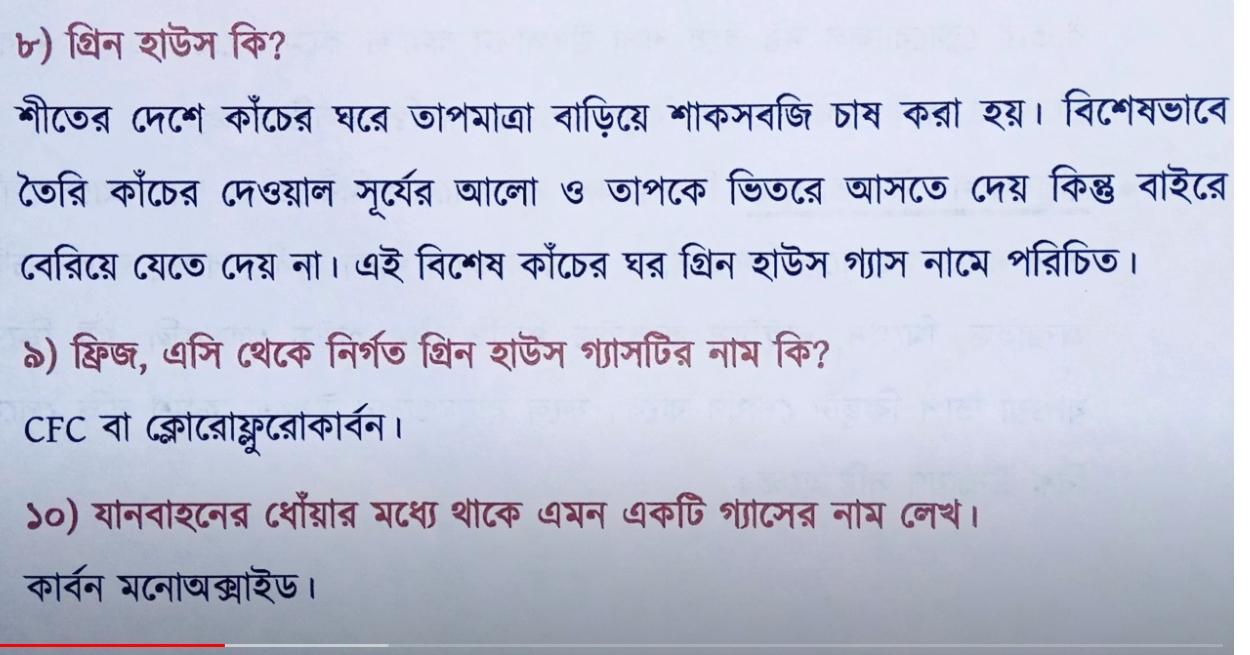 ৮) গ্রিন হাউস কি?
শীতের দেশে কাঁচের ঘরে তাপমাত্রা বাড়িয়ে শাকসবজি চাষ করা হয়। বিশেষভাবে
তৈরি কাঁচের দেওয়াল সূর্যের আলো ও তাপকে ভিতরে আসতে দেয় কিন্তু বাইরে
বেরিয়ে যেতে দেয় না। এই বিশেষ কাঁচের ঘর গ্রিন হাউস গ্যাস নামে পরিচিত।
৯) ফ্রিজ, এসি থেকে নির্গত গ্রিন হাউস গ্যাসটির নাম কি?
CFC বা ক্লোরোফ্লুরোকার্বন।
১০) যানবাহনের ধোঁয়ার মধ্যে থাকে এমন একটি গ্যাসের নাম লেখ।
কার্বন মনোঅক্সাইড।